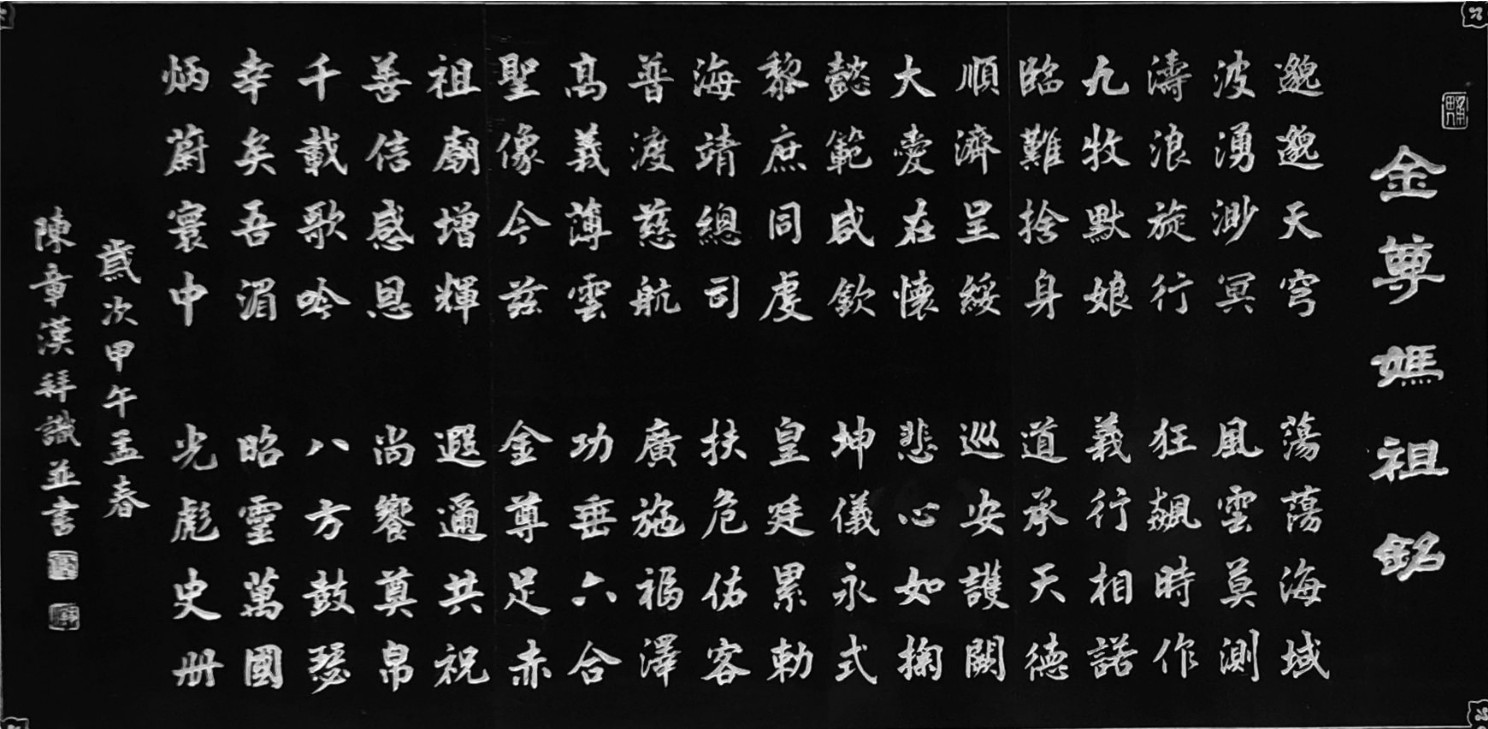 金尊媽祖銘
邈邈天穹 蕩蕩海域
波湧渺冥 風雲莫測
濤浪旋行 狂飆時作
九牧默娘 義行相諾
臨難捨身 道承天德
順濟呈綏 巡安護闕
大愛在懷 悲心如掬
懿範咸欽 坤儀永式
黎庶同虔 皇廷累勅
海靖總司 扶危佑客
普渡慈航 廣施福澤
高義薄雲 功垂六合
聖像今茲 金尊足赤
祖廟增輝 遐邇共祝
善信感恩 尚饗奠帛
千載歌吟 八方鼓瑟
幸矣吾湄 昭靈萬國
炳蔚寰中 光彪史冊
歲次甲午孟春
陳章漢拜識並書